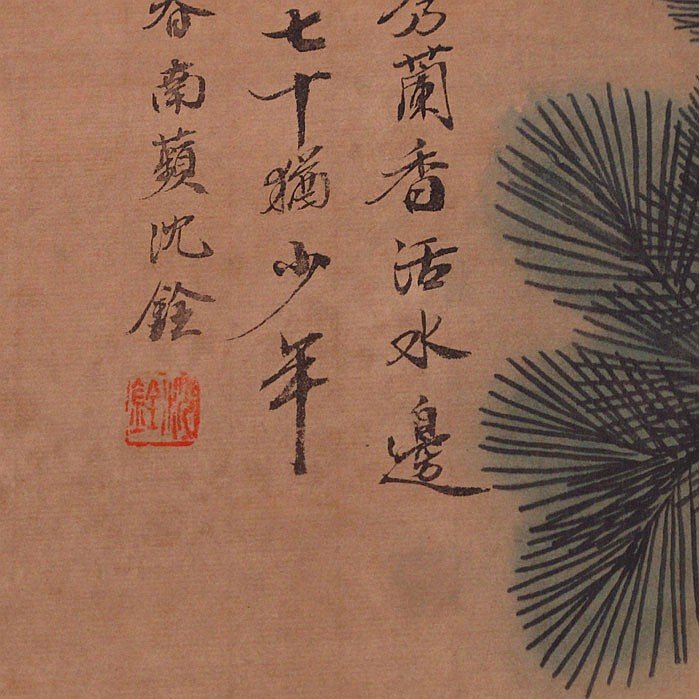 蘭香活水邊
七十猶少年
春南蘋沈銓
沈銓